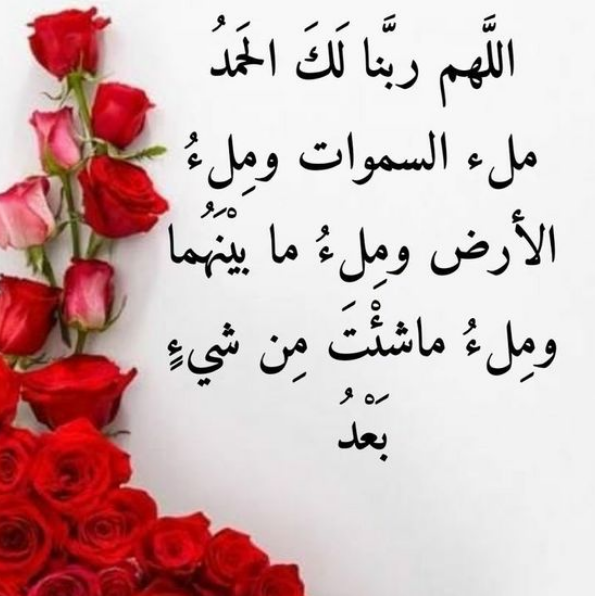 اللَّهم ربَّنا لَكَ الحَمدُ
ملء السموات ومِلءُ
الأرض ومِلءُ ما بيْنَهُما
ومِلءُ ماشئْتَ مِن شيءٍ
بَعْدُ